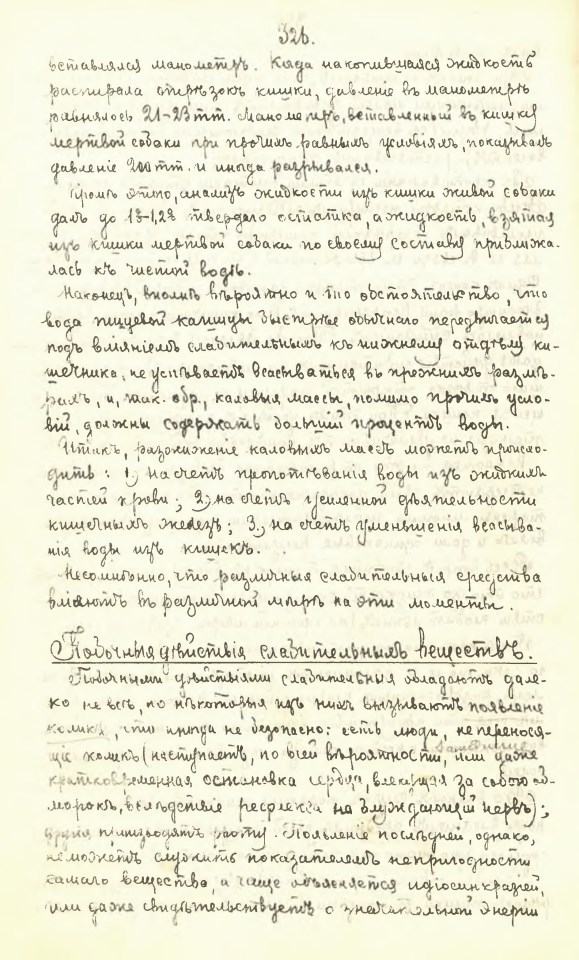 326.
вставлялся манометр. Когда накопившаяся жидкость
распирала отрѣзок кишки, давленіе въ манометрѣ
равнялось 21-23 mm. Манометръ, вставленный въ кишку
мертвой собаки при прочихъ равныхъ условіяхъ, показывалъ
давленіе 200 mm. и иногда разрывался.
Кромѣ этого, анализъ жидкости изъ кишки живой собаки
далъ до твердаго остатка, а жидкость, взятая
изъ кишки мертвой собаки по своему составу приближа-
лась къ чистой водѣ.
Наконецъ, вполнѣ вѣроятно и то обстоятельство, что
вода пищевой кашицы быстрѣе обычнаго передвигается
подъ вліяніемъ слабительныхъ къ нижнему отдѣлу ки-
шечника, не успѣваетъ всасываться въ прежнихъ размѣ-
рахъ, и, так. обр., каловыя массы, помимо прочихъ усло-
вій, должны содержать большій процентъ воды.
Итакъ, разжиженіе каловыхъ массъ можетъ происхо-
дить: 1) на счетъ пропотѣванія воды изъ жидкихъ
частей крови; 2) на счетъ усиленной дѣятельности
кишечныхъ железъ; 3) на счетъ уменьшенія всасыва-
нія воды изъ кишекъ.
Несомнѣнно, что различныя слабительныя средства
вліяютъ въ различной мѣрѣ на эти моменты.
Побочныя дѣйствія слабительныхъ веществъ.
Побочными дѣйствіями слабительныя обладаютъ дале-
ко не всѣ, но нѣкоторыя изъ нихъ вызываютъ появленіе
коликъ, что иногда не безопасно: есть люди, не перенося-
щіе коликъ (наступаетъ, по всей вѣроятности, или даже
кратковременная остановка сердца, влекущая за собою об-
морокъ, вслѣдствіе рефлекса на блуждающій нервъ);
другія производятъ рвоту. Появленіе послѣдней, однако,
не можетъ служить показателемъ непригодности
самаго вещества, а чаще объясняется идіосинкразіей,
или даже свидѣтельствуетъ о значительной энергіи